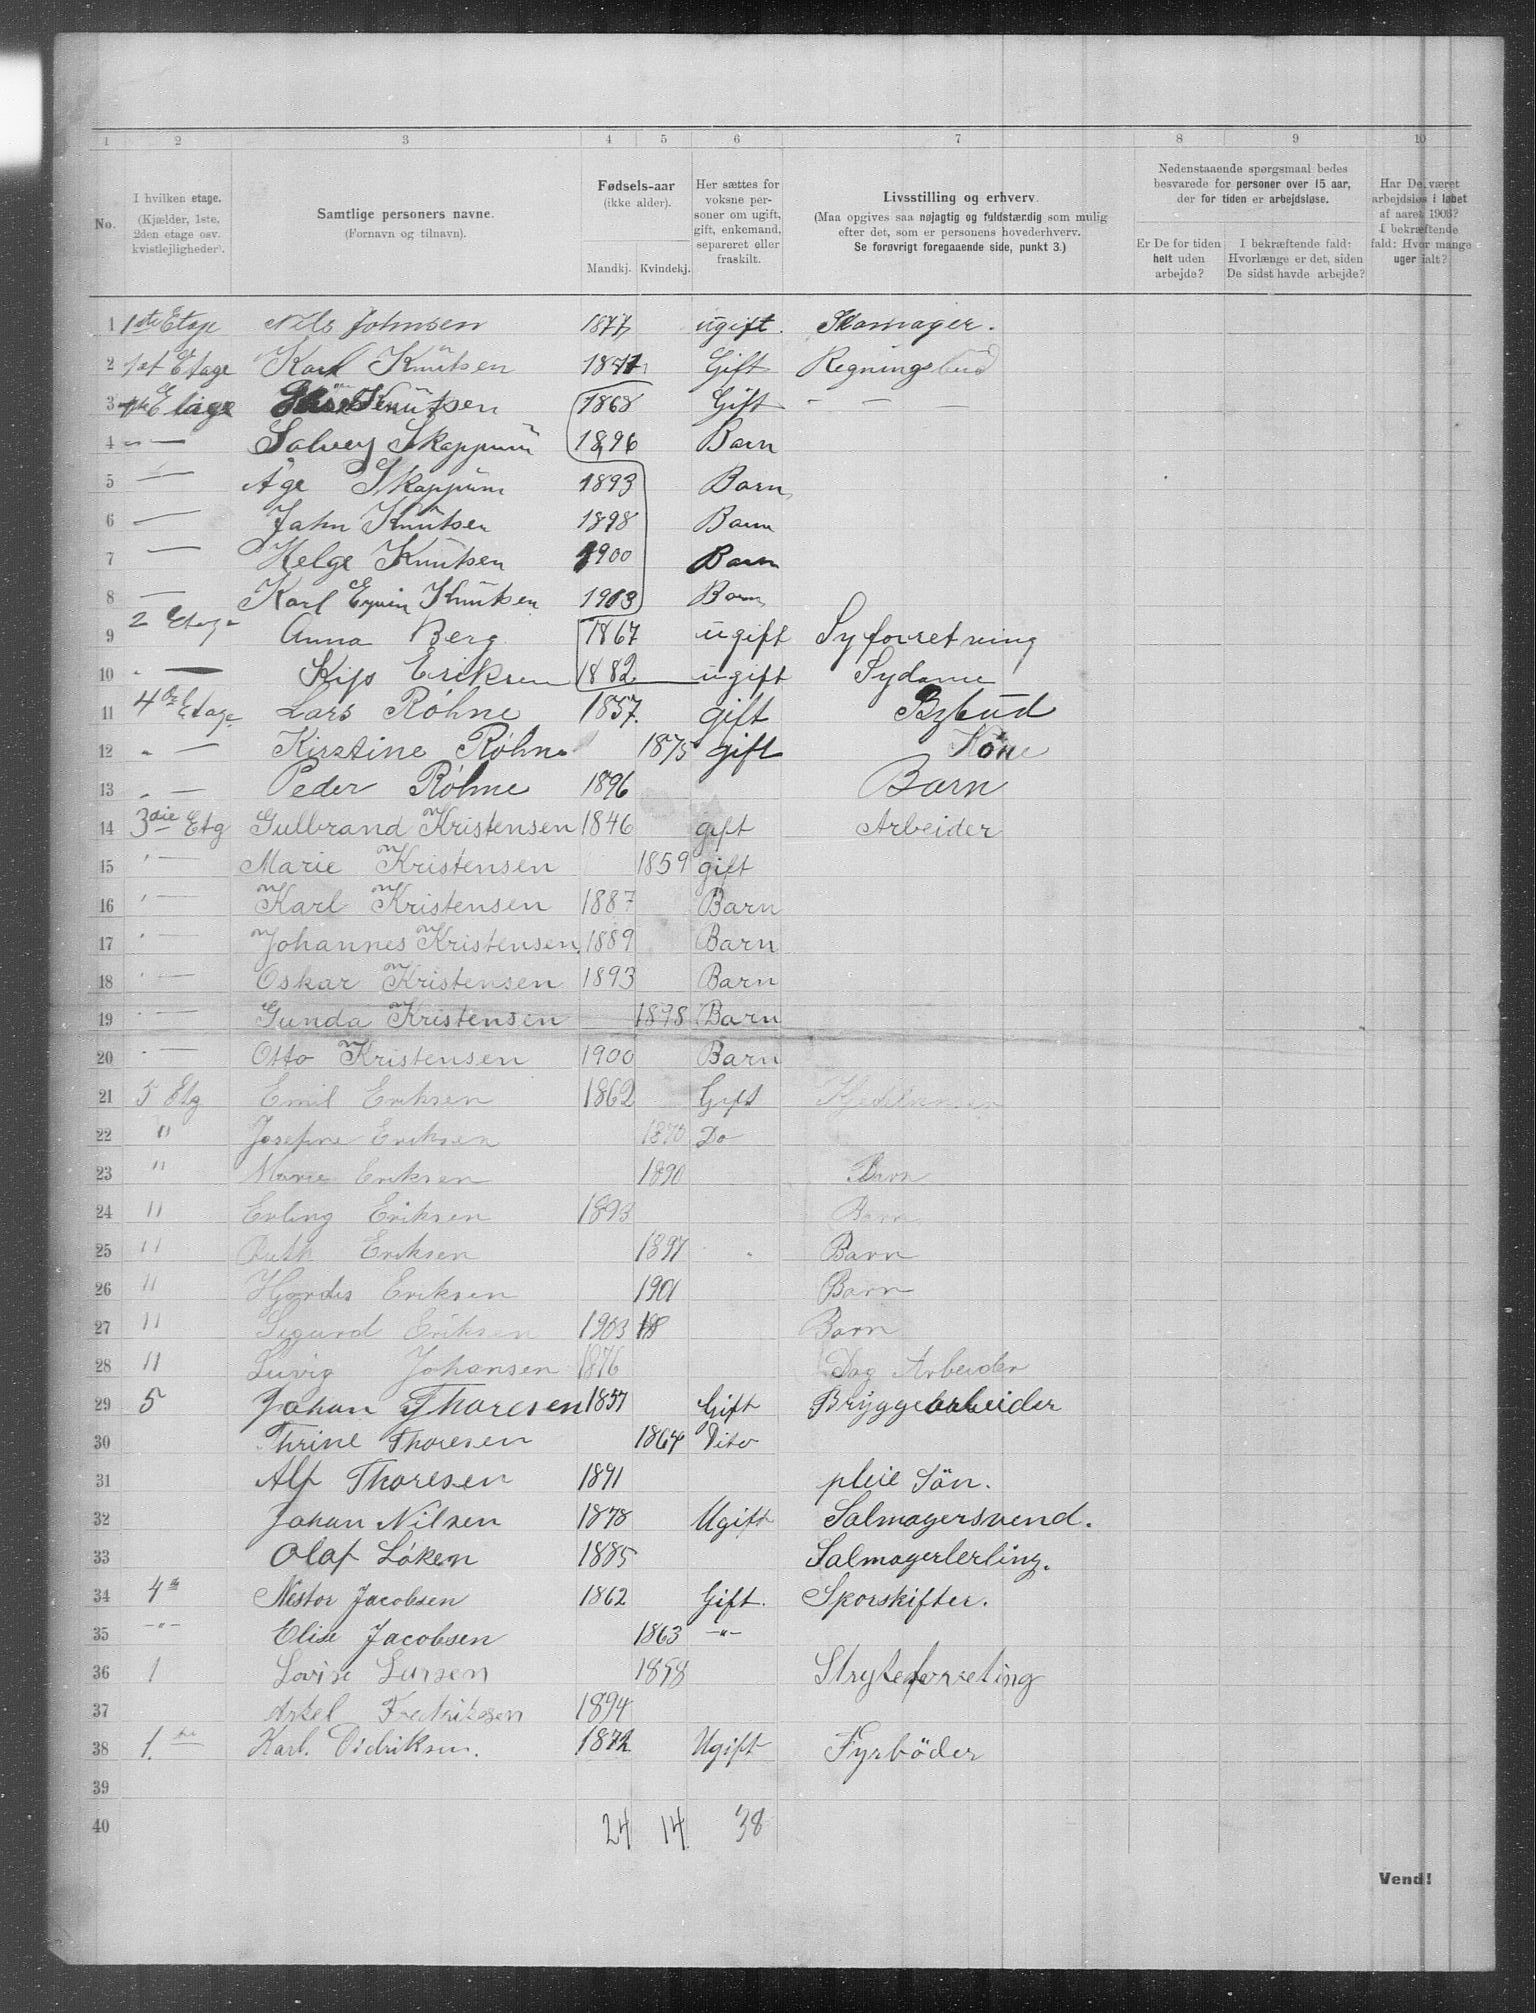 1 2 3 4 5 6 7 8 9 10
No.
I hvilken etage.
(Kjælder, 1ste,
2den etage osv.
kvistlejligheder).
Samtlige personers navne.
(Fornavn og tilnavn).
Fødsels-aar
(ikke alder).
Mandkj. Kvindekj.
Her sættes for
voksne per-
soner om ugift,
gift, enkemand,
separeret eller
fraskilt.
Livsstilling og erhverv.
(Maa opgives saa nøjagtig og fuldstærdig som mulig
efter det, som er personens hovederhverv.
Se forøvrigt foregaaende side, punkt 3.)
Nedenstaaende spørgsmaal bedes
besvarede for personer over 15 aar,
der for tiden er arbejdsløse.
Er De for tiden
helt uden
arbejde?
I bekræftende fald:
Hvorlænge er det, siden
De sidst havde arbejde?
Har De været
arbejdsløs i løbet
af aaret 1903?
I bekræftende
fald: Hvor mange
uger ialt?
1 1ste Etage Nils Johnsen 1877 ugift. Skomager.
2 1st Etage Karl Knutsen 1871 Gift Regningsbud
3 1ste Etage Knutsen 1868 Gift - - -
4 " — Solvey Skappum 1896 Barn
5 — Åge Skappum 1893 Barn
6 — John Knutsen 1898 Barn
7 — Helge Knutsen 1900 Barn
8 — Karl Knutsen 1903 Barn
9 2 Etage Anna Berg 1867 ugift Syforretning
10 " — Eriksen 1882 ugift Sydame
11 4de Etage Lars Røhne 1857. gift Bybud
12 " — Kirstine Røhne 1875 gift Kone
13 " — Peder Røhne 1896 Barn
14 3die Etg Gulbrand Kristensen 1846 gift Arbeider
15 " — Marie Kristensen 1859 gift
16 " — Karl Kristensen 1887 Barn
17 " — Johannes Kristensen 1889 Barn
18 " — Oskar Kristensen 1893 Barn
19 " — Gunda Kristensen 1898 Barn
20 " — Otto Kristensen 1900 Barn
21 5 Etg Emil Eriksen 1862 Gift
22 " Josefine Eriksen 1870 Do
23 " Marie Eriksen 1890 Barn
24 " Erling Eriksen 1893 Barn
25 " Ruth Eriksen 1897 Barn
26 " Hjordis Eriksen 1901 Barn
27 " Sigurd Eriksen 1903 Barn
28 " Luvig Johansen 1876 Dag Arbeider
29 5 Johan Thoresen 1857 Gift Bryggearbeider
30 Thrine Thoresen 1864 Dito
31 Alf Thoresen 1891 pleie Sön.
32 Johan Nilsen 1878 Ugift Salmagersvend.
33 Olaf Løken 1885 Salmagerlerling.
34 4de Nestor Jacobsen 1862 Gift. Sporskifter.
35 -"- Elise Jacobsen 1863 -"-
36 1 Lovise Larsen 1858 Strykeforreting
37 Aksel Fredriksen 1894
38 1.ste Karl. Didriksen. 1872 Ugift Fyrböder
39
40 24 14 38
Vend!